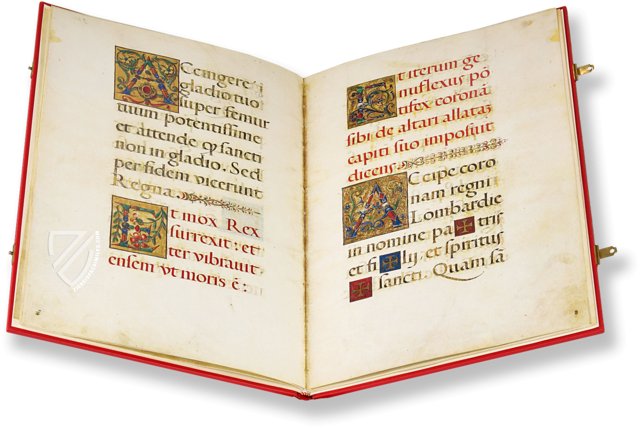 Accingere
gladio tuo
super femur
tuum potentissime
et attende q̨ sancti
non in gladio. Sed
per fidem vicerunt
Regna.
Et mox Rex
surrexit: et
ter vibravit
ensem vt moris ē:
Et iterum ge
nuflexus pō
tifex coronā
sibi de altari allatā
capiti suo imposuit
dicens
Accipe coro
nam regni
Lombardie
in nomine pa tris
et fi lij, et spiritus
sancti. Quam sā